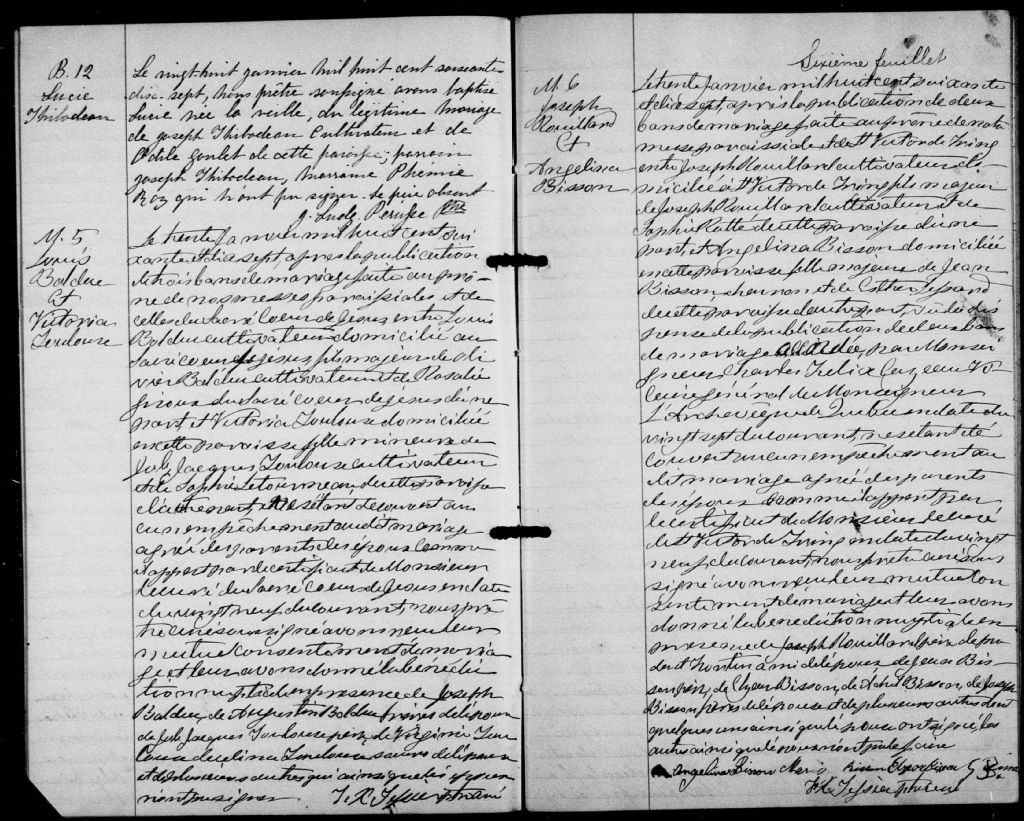 B. 12
Lucie
Thibodeau
Le vingt-huit janvier mil huit cent soixante
dix-sept, nous prêtre soussigné avons baptisé
Lucie née la veille, du légitime mariage
de Joseph Thibodeau Cultivateur et de
Odile Goulet de cette paroisse; parrain
Joseph Thibodeau, marraine Phemie
Roy qui n'ont pu signer. le père absent
J. Ludg. Perusse Ptre
M. 5
Louis
Bolduc
et
Victoria
Toulouse
Le trente Janvier mil huit cent soi
xante et dix sept après la publication
de trois bans de mariage faite au prô
ne de nos messes paroissiales et de
celles du Sacré Coeur de Jesus, entre Louis
Bolduc cultivateur domicilié au
Sacré coeur de Jesus, fils majeur de Oli
vier Bolduc cultivateur et de Rosalie
Giroux du Sacré coeur de Jesus d'une
part, et Victoria Toulouse domiciliée
en cette paroisse fille mineure de
Jacques Toulouse cultivateur
et de Sophie Letourneau de cette paroisse
d'autre part, ne s'étant découvert au
cun empêchement au dit mariage
agréé des parents des époux comme
il appert par le certificat de Monsieur
le curé du Sacré Coeur de Jesus en date
du vingt neuf du courant, nous prê
tre curé soussigné avons reçu leur
mutuel consentement de maria
ge et leur avons donné la bénédic
tion nuptiale en présence de Joseph
Bolduc, de Augustin Bolduc frères de l'époux
de Jacques Toulouse père, de Virginie Tou
louse de Toulouse soeurs de l'épouse
et de plusieurs autres qui ainsi que les époux
n'ont pu signer.
Sixième feuillet
M. 6
Joseph
Rouillard
et
Angelina
Bisson
Le trente Janvier mil huit cent soixante
et dix sept, après la publication de deux
bans de mariage faite au prône de notre
messe paroissiale et de St Victor de Tring
entre Joseph Rouillard cultivateur do
micilié à St Victor de Tring fils majeur
de Joseph Rouillard cultivateur et de
Sophie de cette paroisse d'une
part, et Angelina Bisson domiciliée
en cette paroisse fille majeure de Jean
Bisson et de Esther Lessard
de cette paroisse d'autre part, vu la dis
pense de la publication de deux bans
de mariage accordée par Monsei
gneur Charles Felix Cazeau Vi
caire général de Monseigneur
L'Archevêque de Québec en date du
vingt sept du courant, ne s'étant dé
couvert aucun empêchement au
dit mariage agréé des parents
des époux comme il appert par
le certificat de Monsieur le curé
de St Victor de Tring en date du vingt
neuf du courant, nous prêtre curé sous
signé avons reçu leur mutuel con
sentement de mariage et leur avons
donné la bénédiction nuptiale en
présence de Joseph Rouillard père de
ami de l'époux de Jean Bis
son père, de Elzear Bisson, de Bisson, de Joseph
Bisson frères de l'épouse et de plusieurs autres dont
quelques uns ainsi que l'épouse ont signé, les
autres ainsi que l'époux n'ont pu le faire
Angelina Bisson Marie Bisson Elzear Bisson